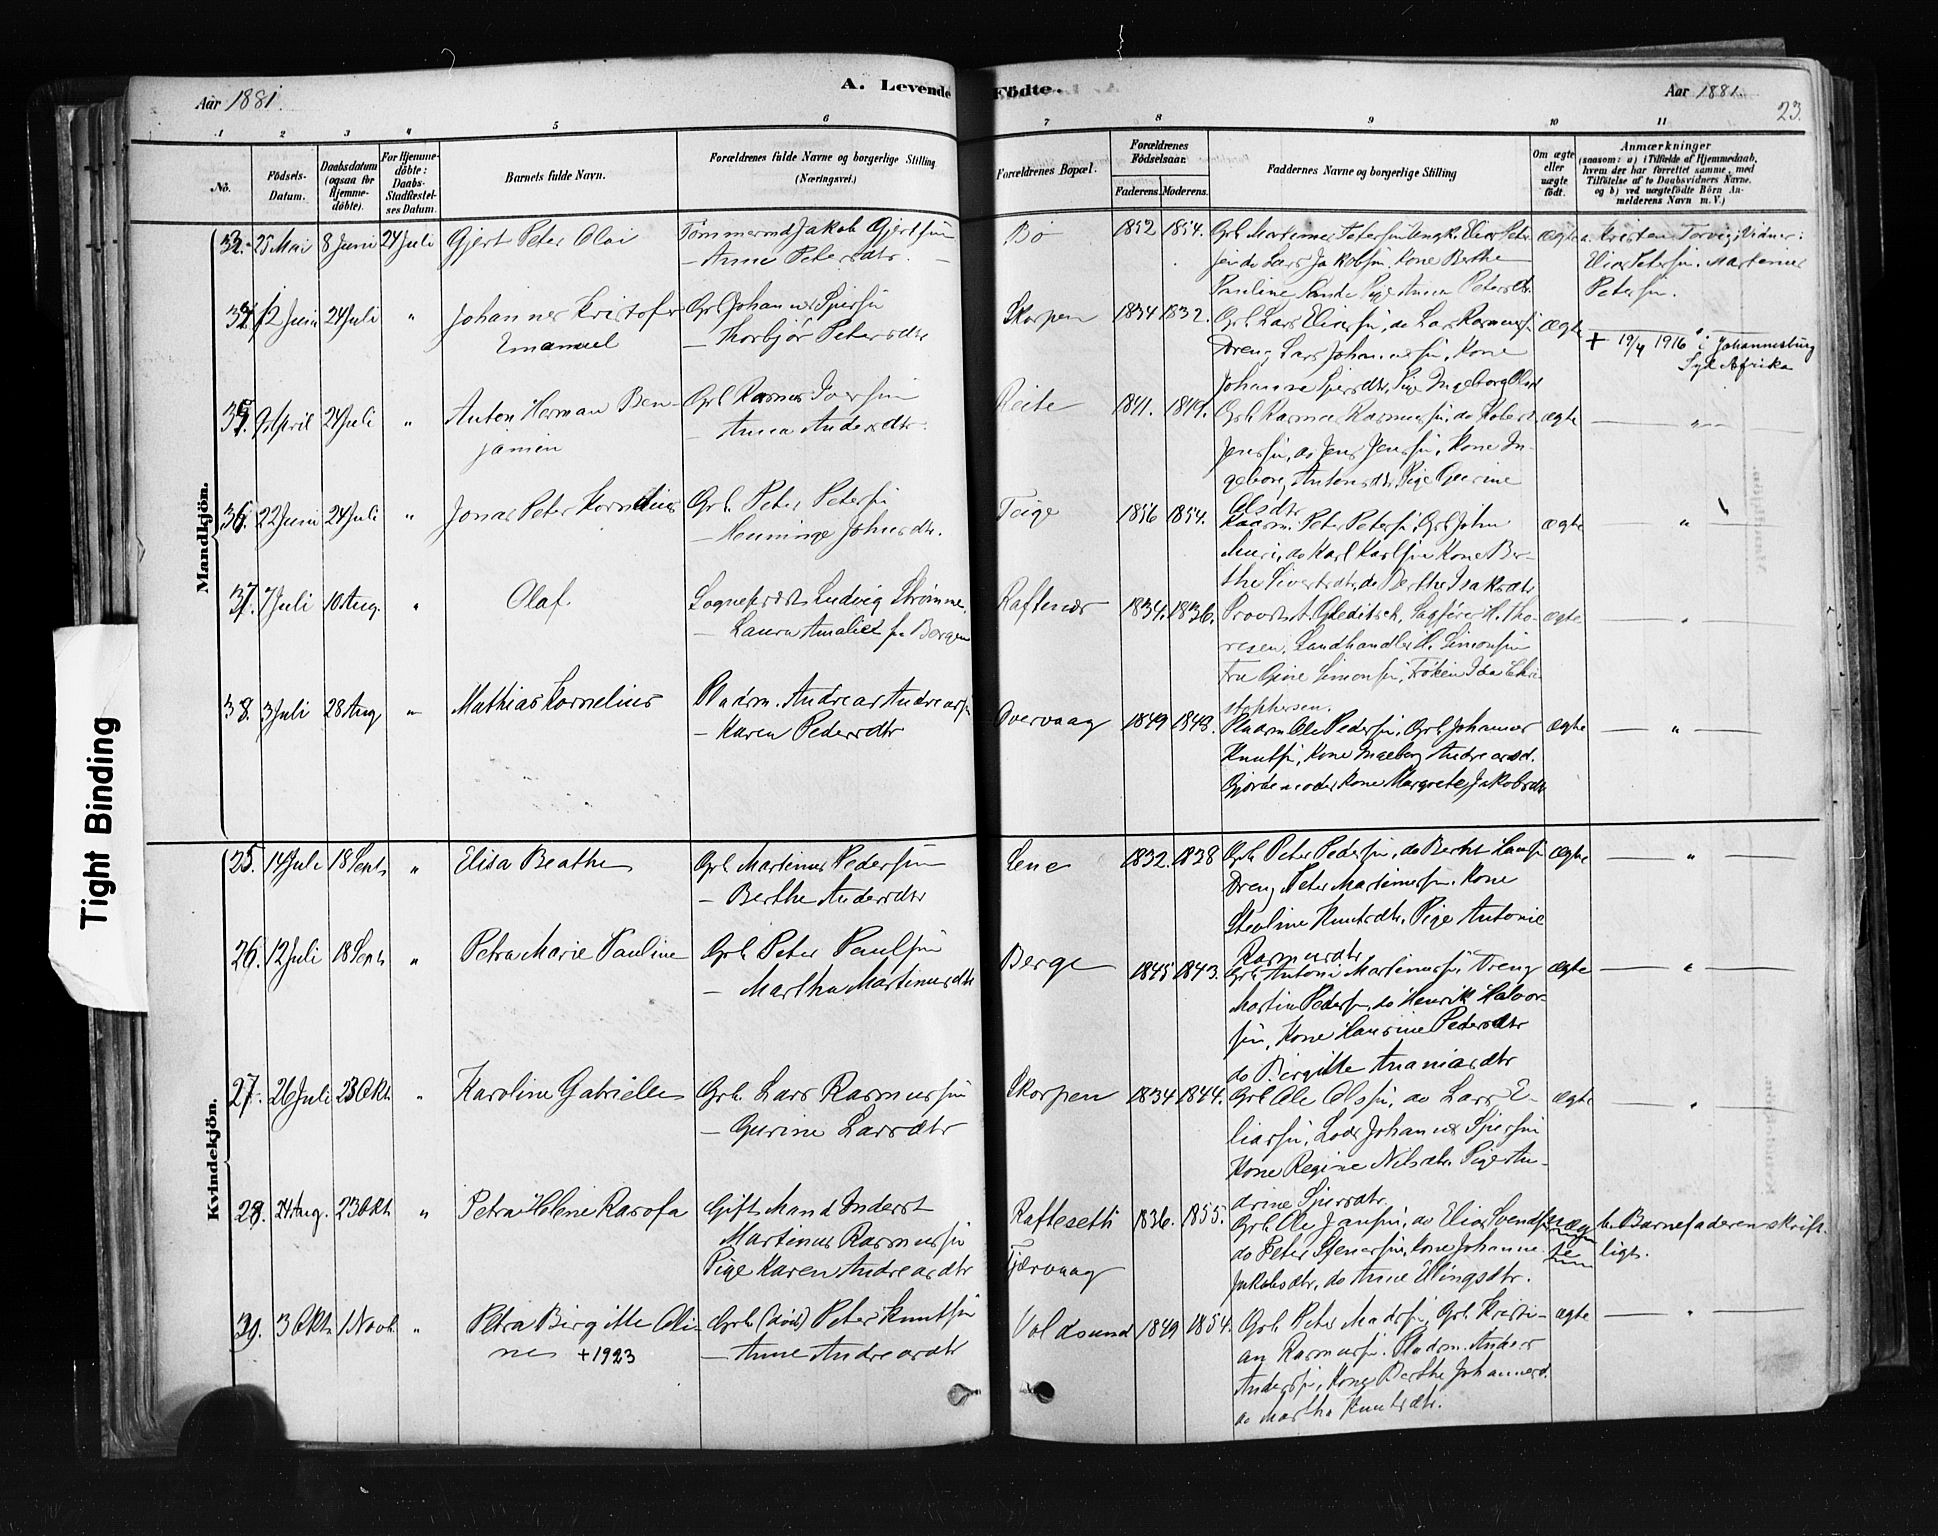 Aar 1881.
A. Levende Födte.
Aar 1881.
23.
1 2 3 4 5 6 7 8 9 10 11
No.
Födsels-Datum.
Daabsdatum (ogsaa for Hjemme-döbte).
For Hjemme-döbte: Daabs-Stadfæstel-ses Datum.
Barnets fulde Navn.
Forældrenes fulde Navne og borgerlige Stilling (Næringsvei.)
Forældrenes Bopæl.
Forældrenes Födselsaar.
Faderens. Moderens.
Faddernes Navne og borgerlige Stilling
Om ægte eller uægte födt.
Anmærkninger
(saasom: a) i Tilfælde af Hjemmedaab, hvem der har forrettet samme, med Tilföielse af to Daabsvidners Navne, og b) ved uægtefödte Börn An-melderens Navn m. V.)
Mandkjön.
33. 25 Mai 8 Juni 24 Juli Gjert Peter Olai
Tømmermd Jakob Gjertsen
— Anne Petersdtr.
Bø 1852 1854.
Grb. Martinus Petersen Ungk. Elias Peter-
sen do Lars Jakobsen, Kone Berthe
Pauline Sande Pige Anna Petersdtr.
ægte
a. Kristen Torvig; Vidner:
Elias Petersen. Martinus
Petersen.
34. 12 Juni 24 Juli " Johannes Kristofer
Emanuel
Grb. Johannes Sjursen
— Thorbjør Petersdtr
Skorpen 1834 1832.
Grb. Lars Eliassen, do Lars Rasmussen
Dreng Lars Johannessen, Kone
Johanne Sjursdtr, Pige Ingeborg Olsd
ægte
+ 19/4 1916 i Johannesburg
Syd Afrika
35. April 24 Juli " Anton Herman Ben-
jamin
Grb. Rasmus Iversen
— Anna Andersdtr.
Reite 1841. 1849.
Grb. Rasmus Rasmussen, do Robert
Jenssen, do Jens Jenssen, Kone In-
geborg Antonsdtr, Pige Gurine
Olsdtr
ægte — " —
36. 22 Juni 24 Juli " Jonas Peter Kornelius
Grb. Peter Petersen
— Henninge Johnsdtr.
Teige 1856 1854.
Peter Petersen, Grb. John
Muri, do Karl Karlsen Kone Ber-
the Sivertsdtr, do Berthe Isaksdtr
ægte — " —
37. 7 Juli 10 Aug. " Olaf.
Sogneprest Ludvig Strømme.
— Laura Amalie f. Bergen
Raftenes 1834. 1836.
Provst A. Gleditsch, Sagfører H. Tho-
resen, Landhandler H. Simonsen
Fru Gine Simonsen, Frøken Ida Chri-
stophersen.
ægte — " —
38. 3 Juli 28 Aug " Mathias Kornelius
Pladsm. Andreas Andreassen
— Karen Pedersdtr
Overvaag 1849 1848.
Pladsm Ole Pedersen, Grb. Johannes
Knutsen, Kone Ingeborg Andreasd.
Gjordemoder Kone Margrete Jakobsdtr
ægte — " —
Kvindekjön.
25. 14 Juli 18 Sept. " Elisa Beathe
Grb. Martinus Pedersen
— Berthe Andersdtr
Lene 1832. 1838
Grb. Peter Pedersen, do Larsen
Dreng Peter Martinussen, Kone
Knutsdtr. Pige Antonie
Rasmusdtr
ægte — " —
26. 12 Juli 18 Sept. " Petra Marie Pauline
Grb. Peter Paulsen
— Martha Martinusdtr
Berge 1845 1843.
Grb. Antoni Martinussen, Dreng
Martin Pedersen, do Henrik Halvor-
sen, Kone Laurine Pedersdtr
do Birgitte Ananiasdtr
ægte — " —
27. 26 Juli 23 Okt. " Karoline Gabrielle
Grb. Lars Rasmussen
— Gurine Larsdtr
Skorpen 1834 1844.
Grb. Ole Olssen, do Lars E-
liassen, Lods Johannes Sjursen
Kone Regine Nilsdtr. Pige An-
drine Sjursdtr.
ægte — " —
28. 24 Aug. 23 Okt. " Petra Helene Rasofa
Gift Mand Inderst
Martinus Rasmussen
Pige Karen Andreasdtr
Raftesett
Tjærvaag
1836. 1855.
Grb. Ole Jansen, do Elias Svendsen
do Peter Steneren, Kone Johanne
Jakobsdtr, do Anne Ellingsdtr.
uæg
te
b. Barnefaderen skrift-
ligt.
29. 3 Okt. 1 Novb. " Petra Birgitte Oli-
ne +1923
Grb. (død) Peter Knutsen
— Anne Andreasdtr
Voldsund 1849 1854.
Grb. Peter Madssen, Grb. Kristi-
an Rasmussen. Pladsm. Anders
Anderssen, Kone Berthe Johannesd.
do Martha Knutsdtr.
ægte — " —
Tight Binding